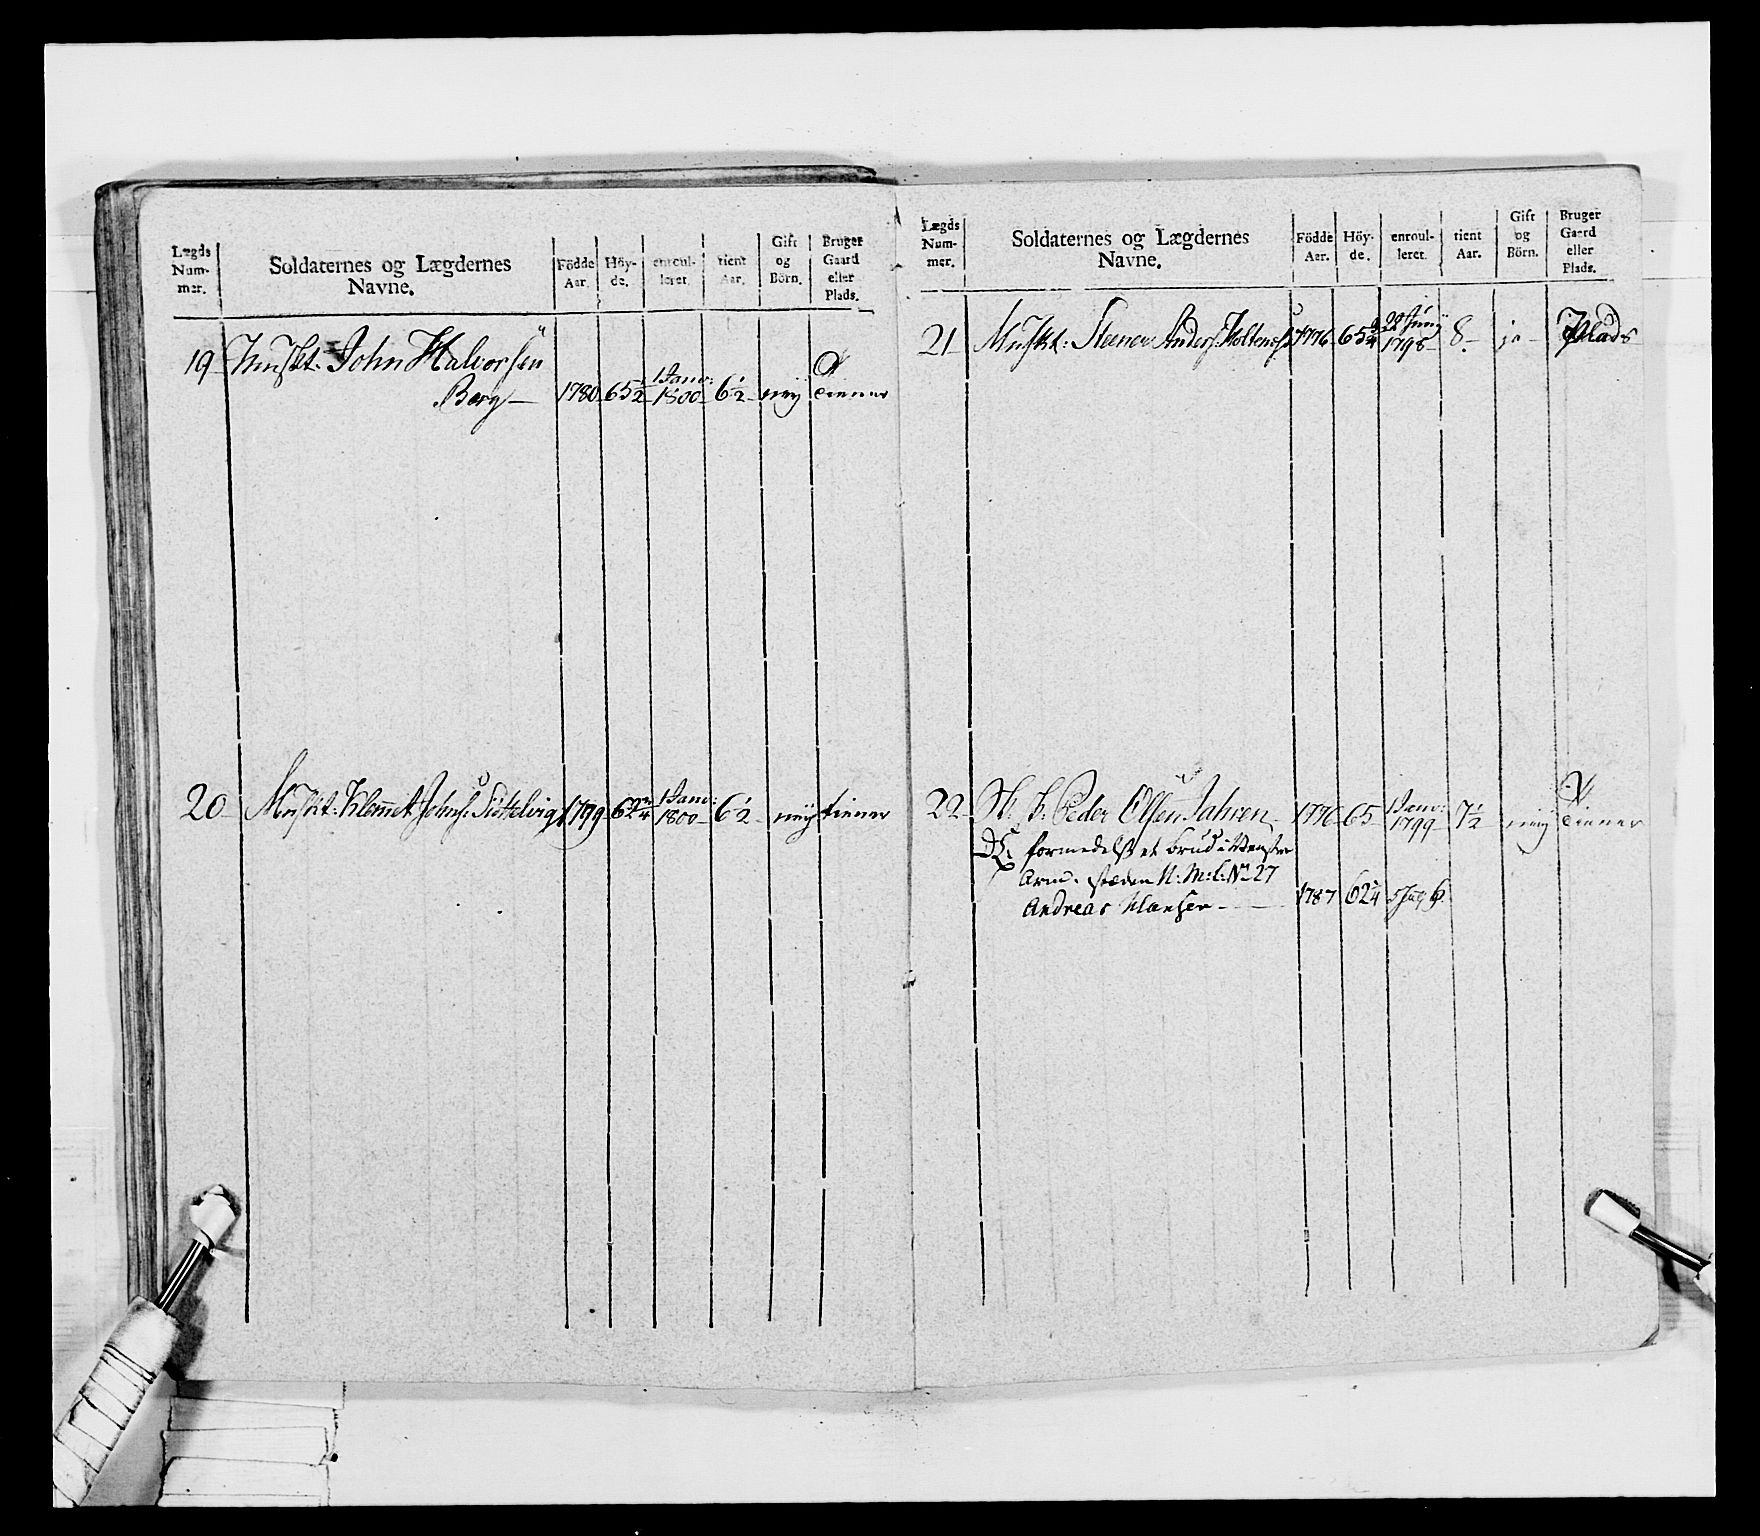 Lægds
Num-
mer.
Soldaternes og Lægdernes
Navne.
Födde
Aar.
Höy-
de.
enroul-
leret.
tient
Aar.
Gift
og
Börn.
Bruger
Gaard
eller
Plads.
19 Muskt: John Halvorsen
Berg 1780 65½ 1 Janv: 1800 6½ neij tienner
20 Muskt: Klemmet Johns: 1779 62¾ 1 Janv: 1800 6½ neij tienner
Lægds
Num-
mer.
Soldaternes og Lægdernes
Navne.
Födde
Aar.
Höy-
de.
enroul-
leret.
tient
Aar.
Gift
og
Börn.
Bruger
Gaard
eller
Plads.
21 Muskt: Steener Anders: Holtene 1776 65¾ 1798 8 ja Plads
22 Peder Olsen Jahren 1776 65 1 Janv: 1799 7½ neij tienner
formedelst et brud i Venstre
Arm. stæden N: M: C: No 27
Andreas Hansen 1787 62¼